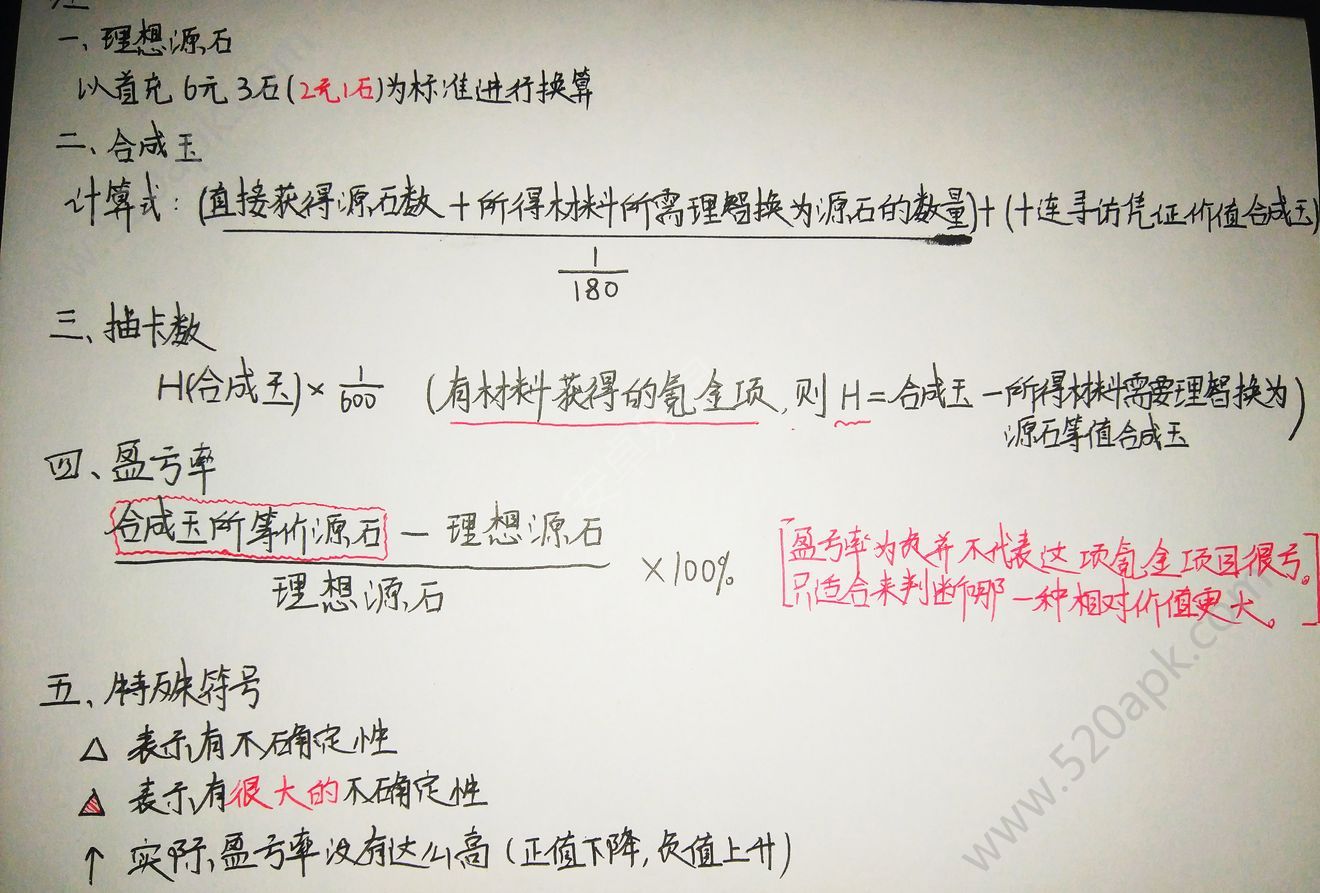 一、理想源石
以首充 6元 3石(2元1石)为标准进行换算
二、合成玉
计算式：(直接获得源石数＋所得材料所需理智换为源石的数量)＋(十连寻访凭证价值合成玉)
1
180
三、抽卡数
H(合成玉)×1/600 (有材料获得的氪金项,则H=合成玉－所得材料需要理智换为
源石等值合成玉)
四、盈亏率
合成玉所等价源石－理想源石
理想源石
×100%
[盈亏率为负并不代表这项氪金项目很亏。
只适合来判断哪一种相对价值更大。]
五、特殊符号
△ 表示有不确定性
▲ 表示有很大的不确定性
↑ 实际盈亏率没有这么高(正值下降,负值上升)
www.520apk.com